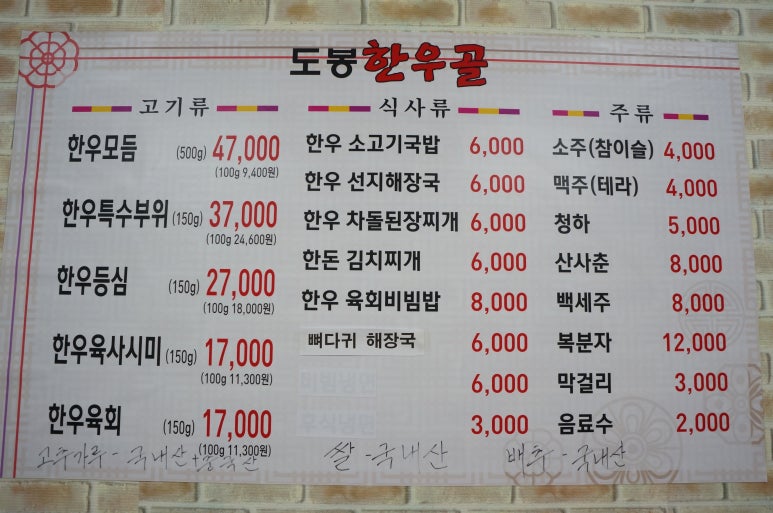 도봉한우골
고기류
한우모듬 (500g) 47,000
(100g 9,400원)
한우특수부위 (150g) 37,000
(100g 24,600원)
한우등심 (150g) 27,000
(100g 18,000원)
한우육사시미 (150g) 17,000
(100g 11,300원)
한우육회 (150g) 17,000
(100g 11,300원)
식사류
한우 소고기국밥 6,000
한우 선지해장국 6,000
한우 차돌된장찌개 6,000
한돈 김치찌개 6,000
한우 육회비빔밥 8,000
뼈다귀 해장국 6,000
비빔냉면 6,000
후식냉면 3,000
주류
소주(참이슬) 4,000
맥주(테라) 4,000
청하 5,000
산사춘 8,000
백세주 8,000
복분자 12,000
막걸리 3,000
음료수 2,000
고추가루 - 국내산 + 중국산
쌀 - 국내산
배추 - 국내산